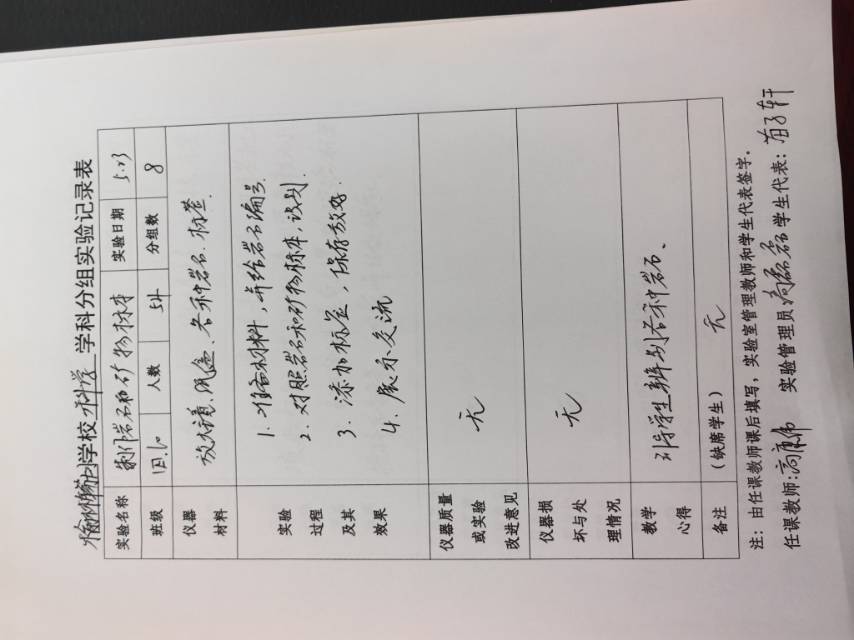 学校 科学 学科分组实验记录表
实验名称 制作岩石和矿物标本 实验日期 5.23
班级 四.(1) 人数 54 分组数 8
仪器材料 放大镜、纸盒、各种岩石、标签.
实验过程及其效果
1. 准备材料,并给岩石编号.
2. 对照岩石和矿物标本,识别.
3. 添加标签,保存放好.
4. 展示交流
仪器质量或实验改进意见 无
仪器损坏与处理情况 无
教学心得 引导学生辨别各种岩石、
备注 (缺席学生) 无
注:由任课教师课后填写,实验室管理教师和学生代表签字。
任课教师: 实验管理员 学生代表: